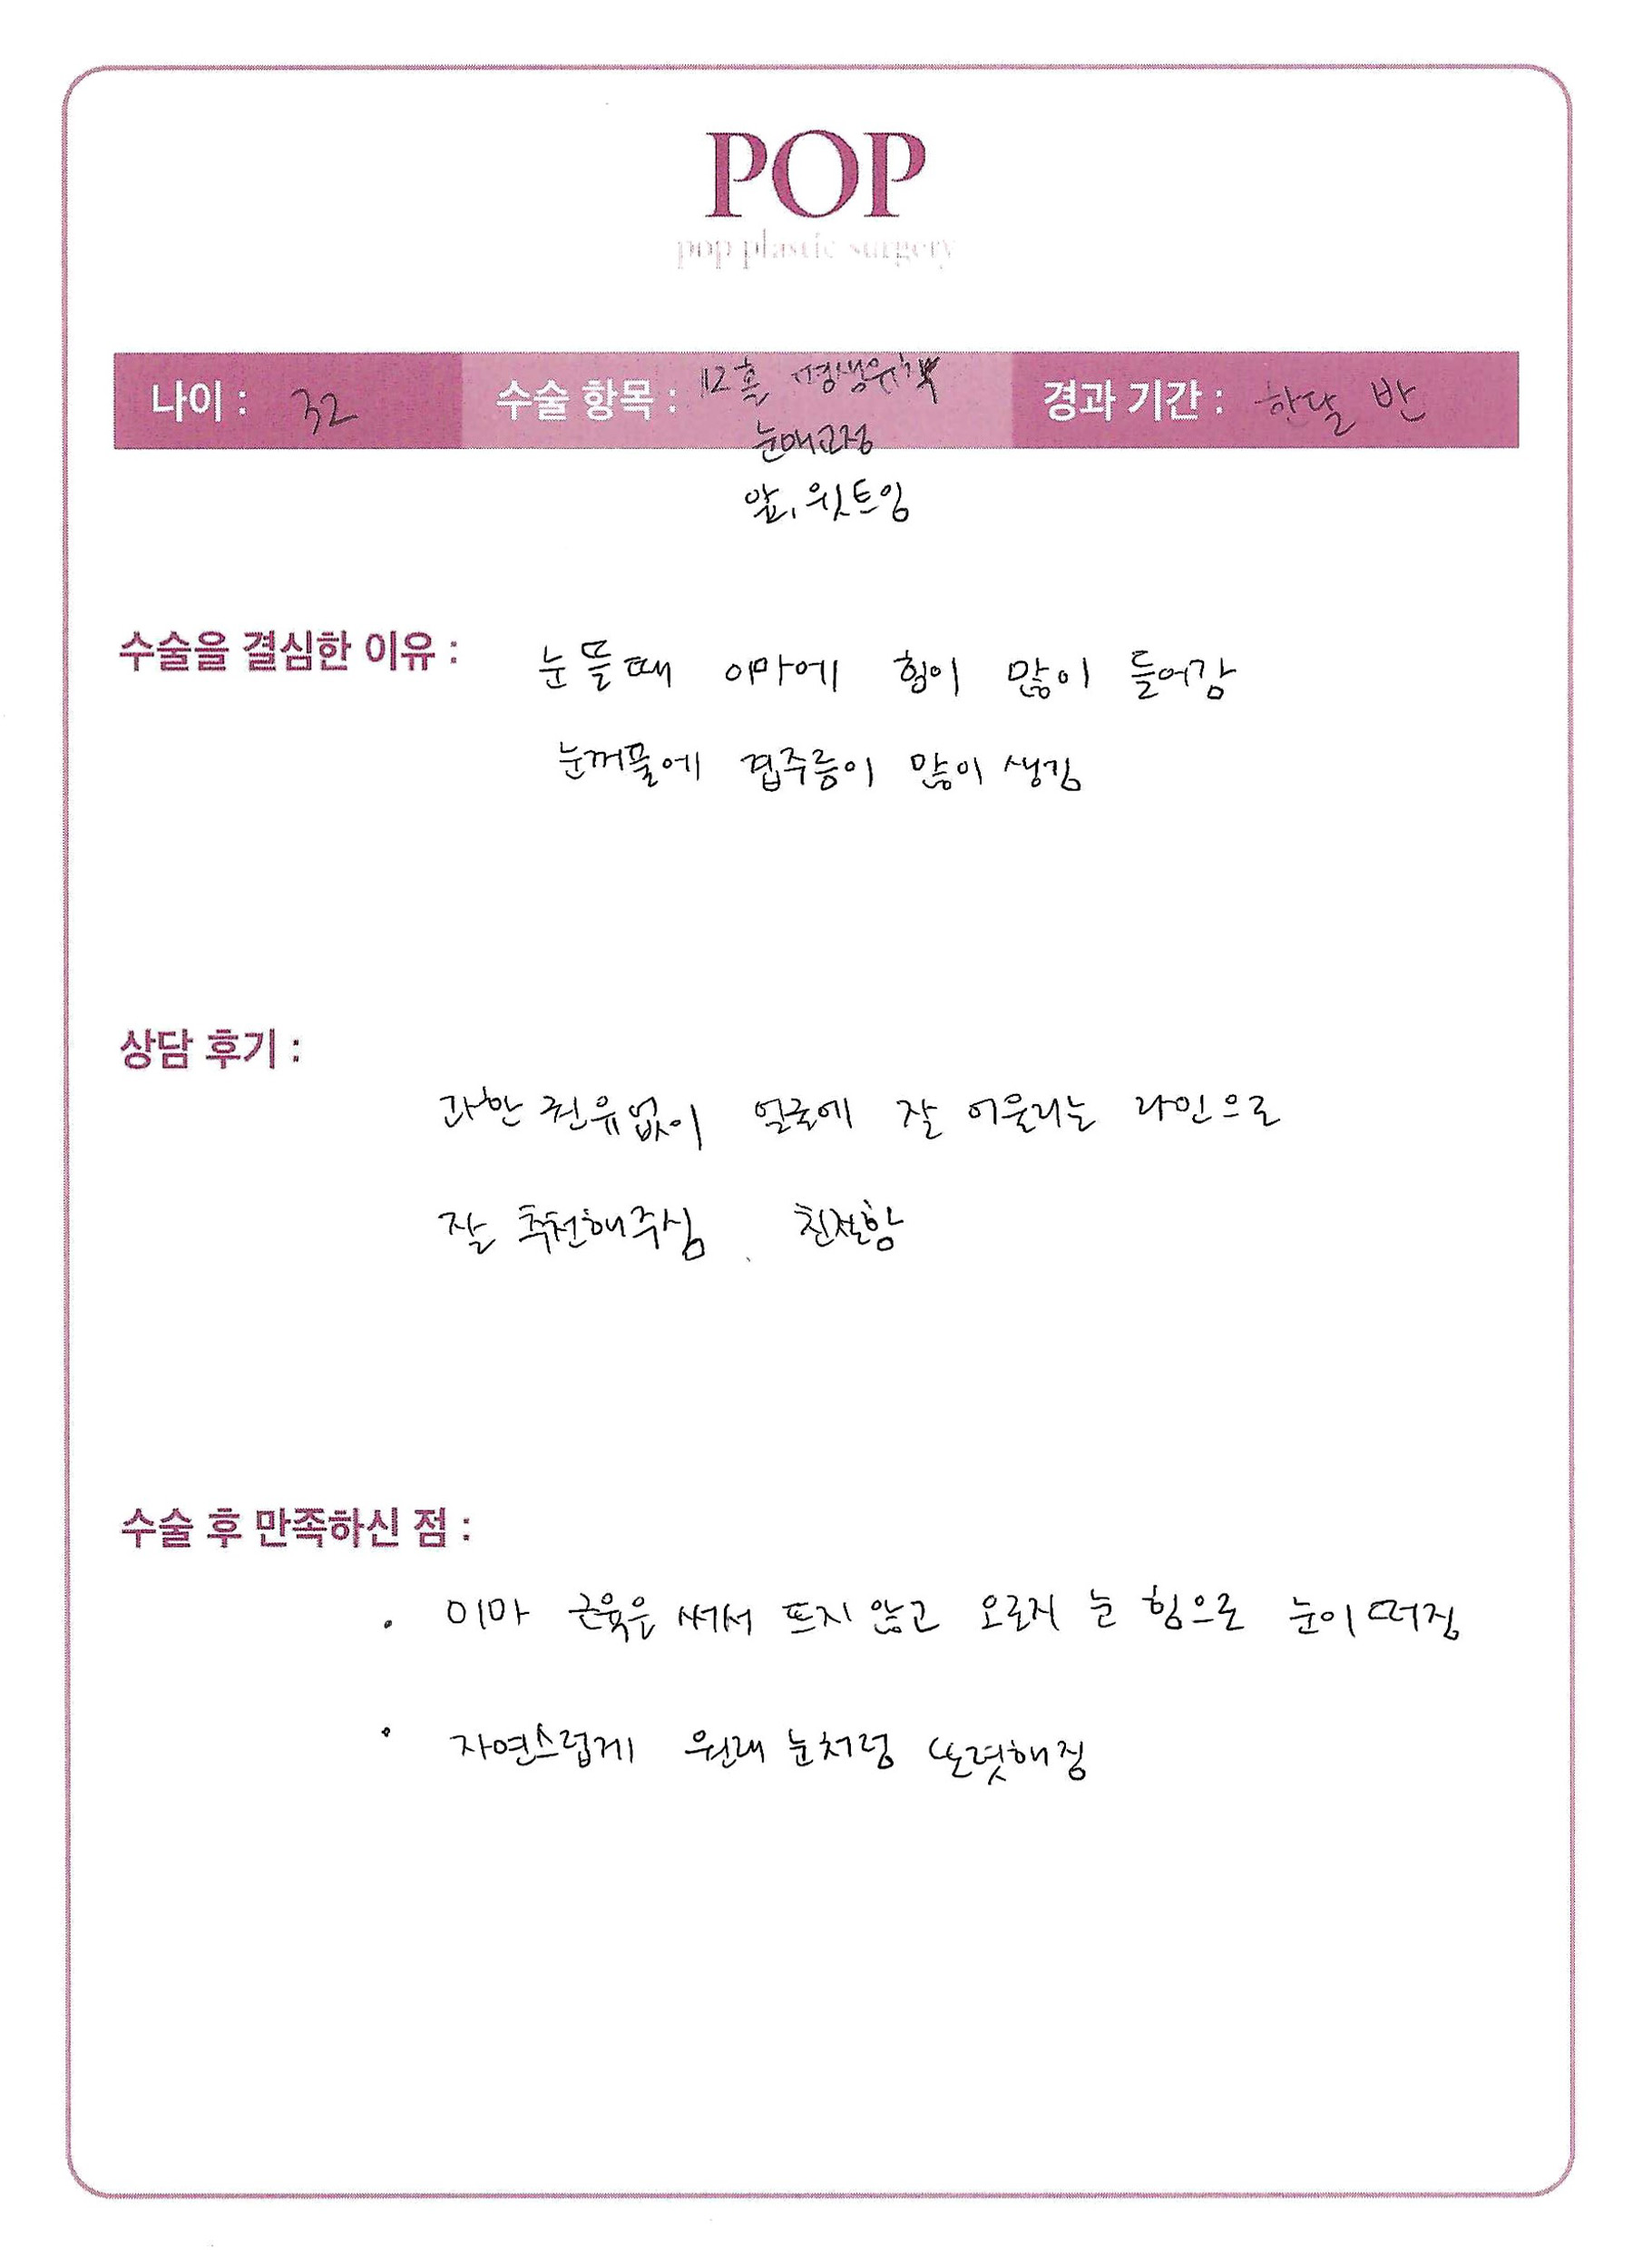 POP
pop plastic surgery
나이 : 32 수술 항목 : 112홀 평생유착 경과 기간 : 한달 반
눈매교정
앞, 윗트임
수술을 결심한 이유 : 눈 뜰때 이마에 힘이 많이 들어감
눈꺼풀에 겹주름이 많이 생김
상담 후기 :
과한 권유없이 얼굴에 잘 어울리는 라인으로
잘 추천해주심. 친절함
수술 후 만족하신 점 :
. 이마 근육은 써서 뜨지 않고 오로지 눈 힘으로 눈이 떠짐
. 자연스럽게 원래 눈처럼 또렷해짐